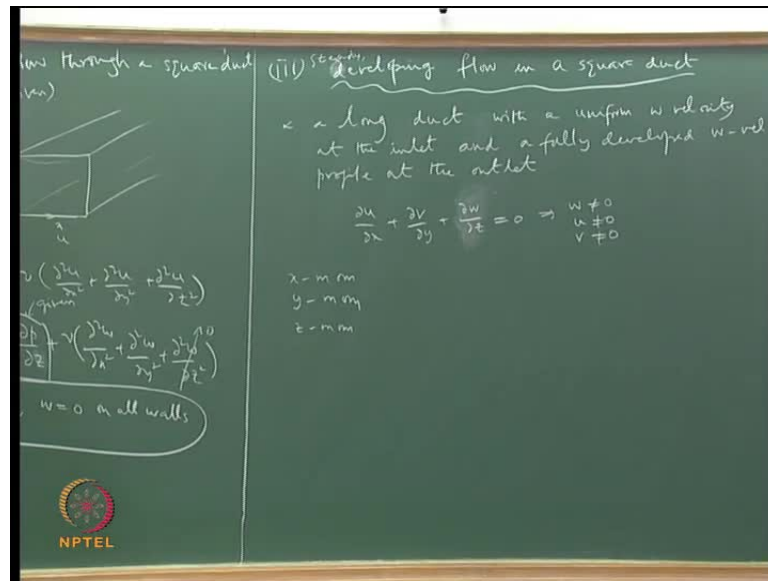 through a square duct
∂²u/∂x² + ∂²u/∂y² + ∂²u/∂z²)
given
∂p/∂z + ν(∂²w/∂x² + ∂²w/∂y² + ∂²w/∂z²) 0
w=0 on all walls
x
u
(iii) steady developing flow in a square duct
a long duct with a uniform w velocity
at the inlet and a fully developed w-vel
profile at the outlet
∂u/∂x + ∂v/∂y + ∂w/∂z = 0 ⇒ w ≠ 0
u ≠ 0
v ≠ 0
x-mom
y-mom
z-mom
NPTEL